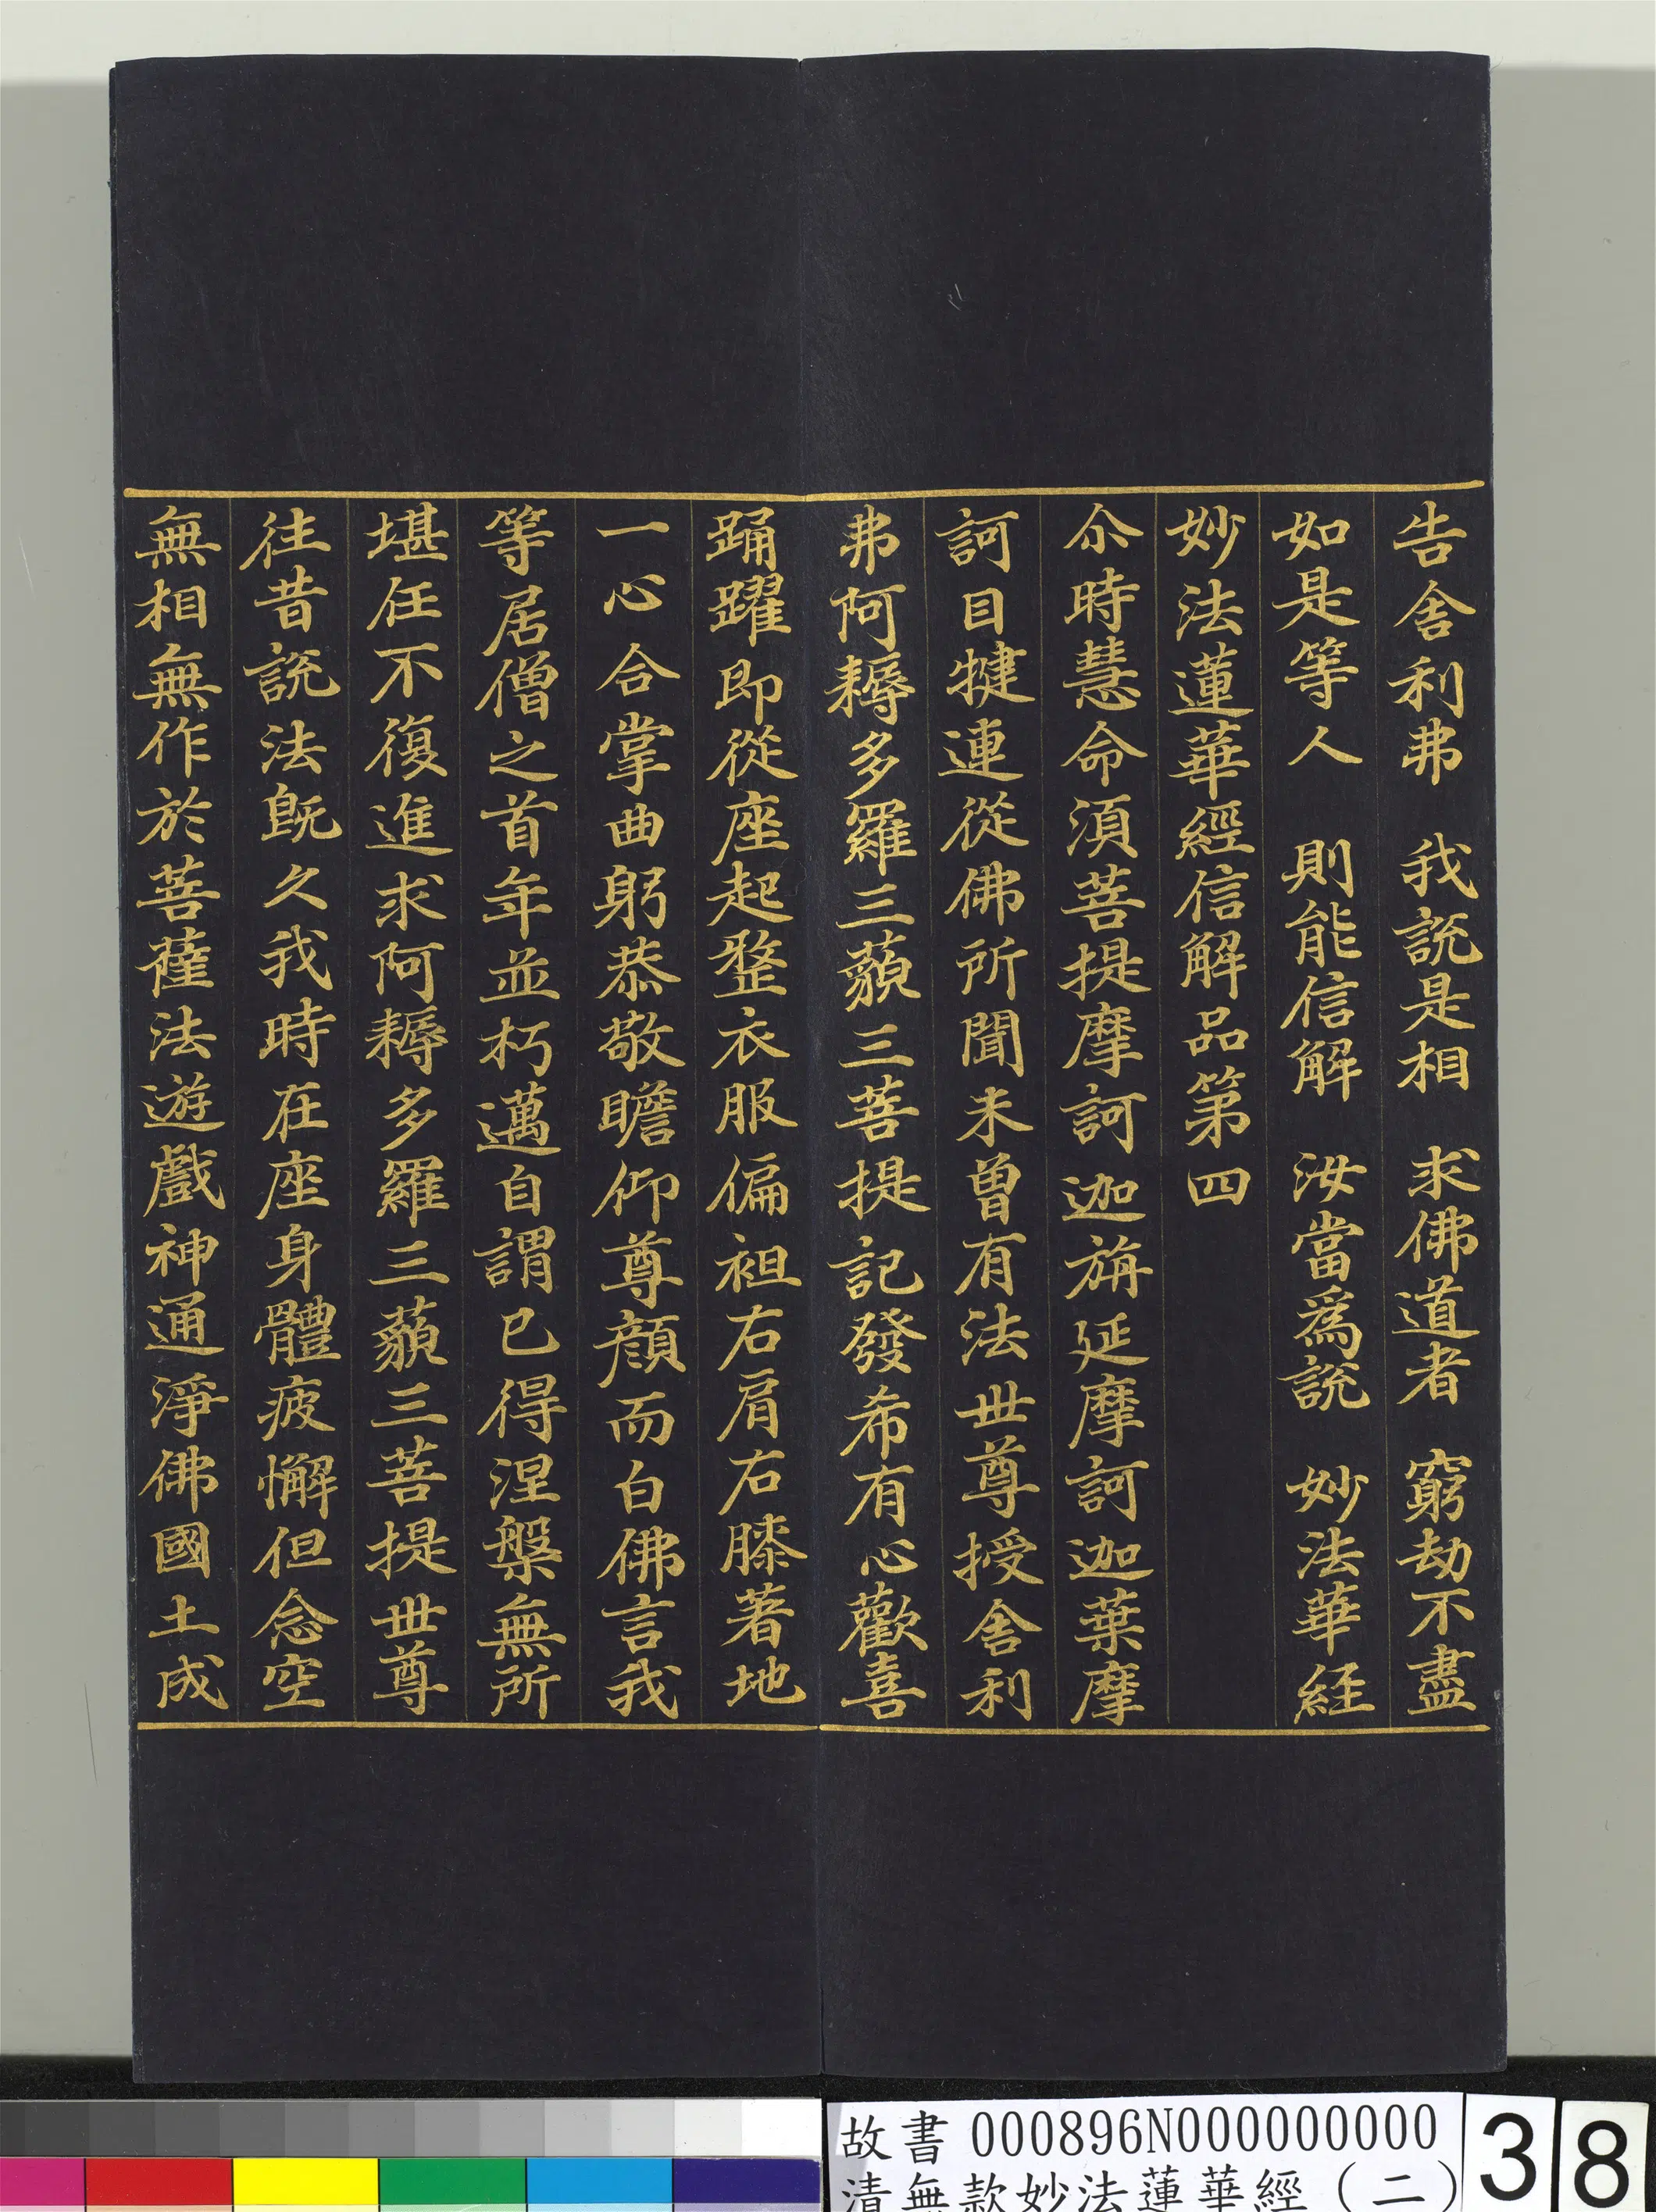 告舍利弗　我說是相　求佛道者　窮劫不盡
如是等人　則能信解　汝當為說　妙法華經
妙法蓮華經信解品第四
尒時慧命須菩提摩訶迦旃延摩訶迦葉摩
訶目揵連從佛所聞未曾有法世尊授舍利
弗阿耨多羅三藐三菩提記發希有心歡喜
踊躍即從座起整衣服偏袒右肩右膝著地
一心合掌曲躬恭敬瞻仰尊顏而白佛言我
等居僧之首年並朽邁自謂已得涅槃無所
堪任不復進求阿耨多羅三藐三菩提世尊
往昔說法既久我時在座身體疲懈但念空
無相無作於菩薩法遊戲神通淨佛國土成
故書 000896N000000000 38
清無款妙法蓮華經（二）